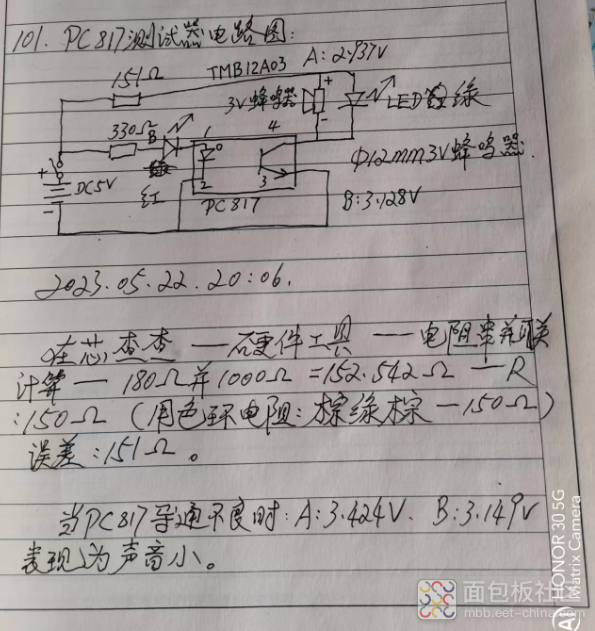 101. PC817测试器电路图:
151Ω TMB12A03 A: 2.937V
3V蜂鸣器 + -
LED 绿
330Ω B 1 4
Φ12mm3V蜂鸣器.
+ DC5V -
红 2 3
PC817 B: 3.128V
2023.05.22.20:06.
在芯查查 — 硬件工具 — 电阻串并联
计算 — 180Ω并1000Ω = 152.542Ω — R
:150Ω (用色环电阻: 棕绿棕 — 150Ω)
误差:151Ω。
当PC817导通不良时: A:3.424V. B:3.149V
表现为声音小。
面包板社区
mbb.eet-china.com
HONOR 30 5G
Matrix Camera
(AI)